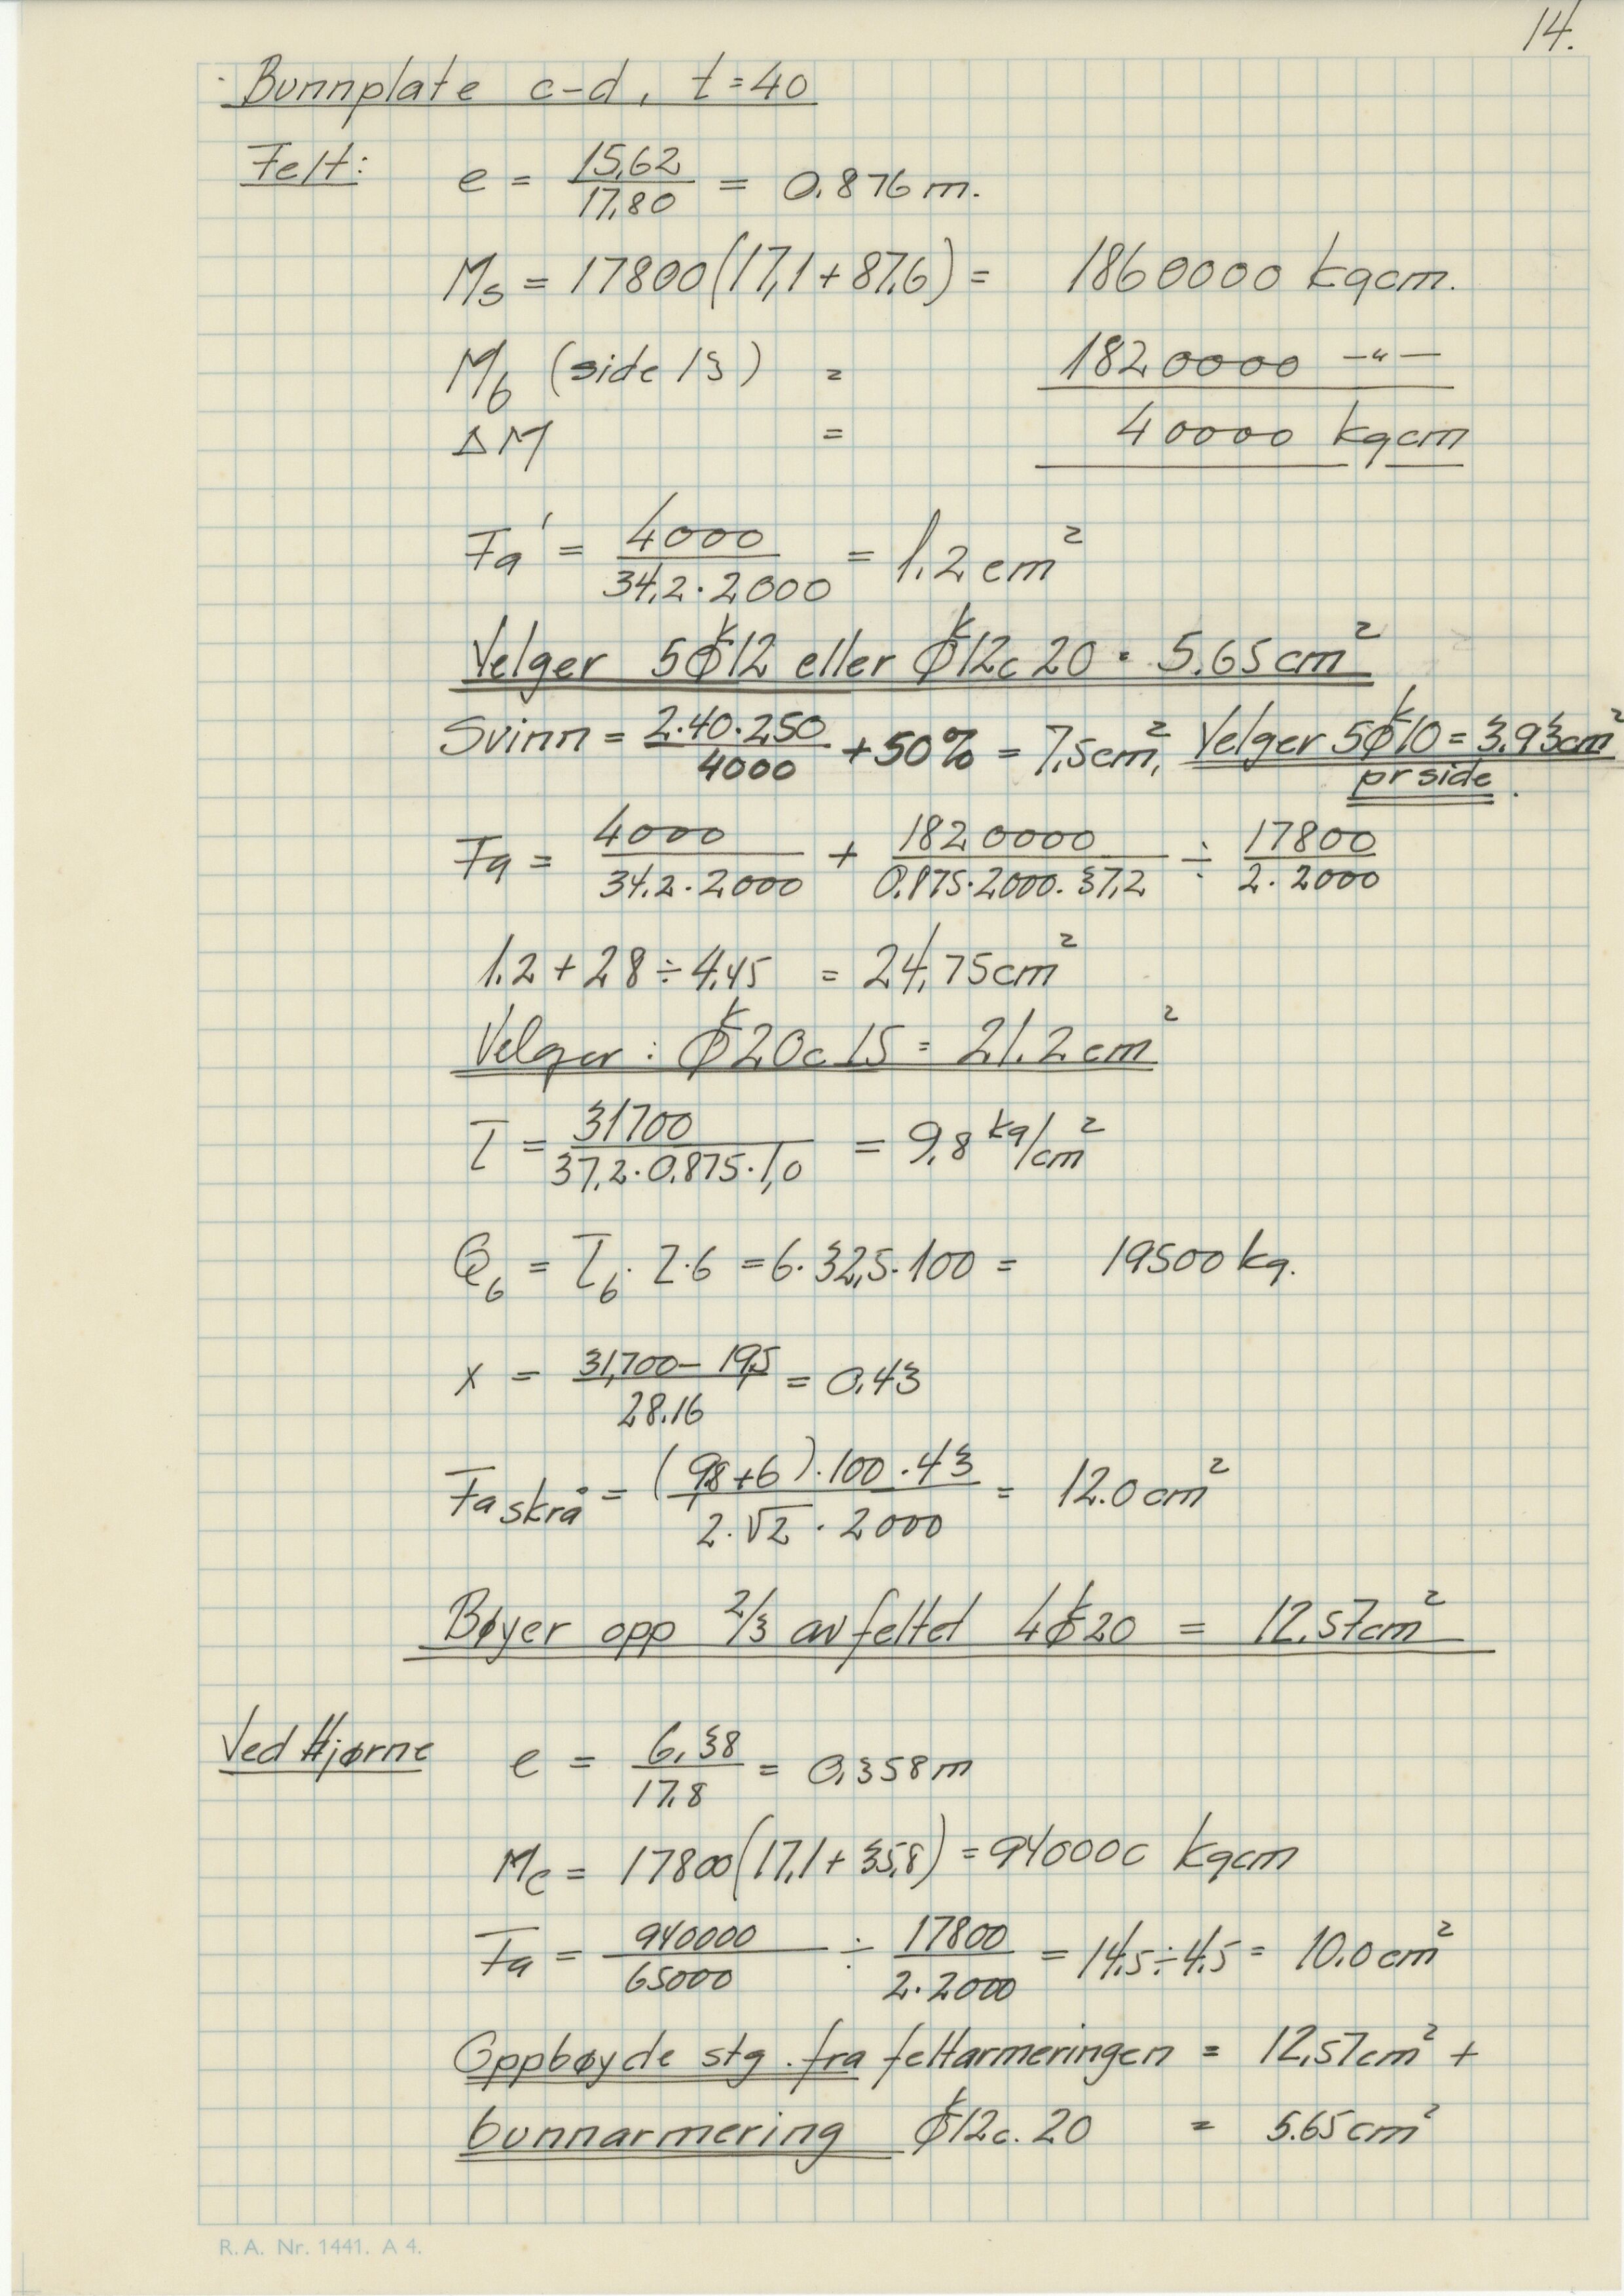 14.
Bunnplate c-d, t=40
Felt: e = 15,62 / 17,80 = 0.876 m.
Ms = 17800(17,1+87,6) = 1860000 kgcm.
Mb (side 13) = 1820000 -"-
ΔM = 40000 kgcm
Fa' = 4000 / 34,2·2000 = 1,2 cm²
Velger 5ϕᵏ12 eller ϕᵏ12c 20 · 5.65 cm²
Svinn = 2·40·250 / 4000 +50% = 7,5cm², Velger 5ϕᵏ10 = 3.93cm²
pr side.
Fa = 4000 / 34,2·2000 + 1820000 / 0,875·2000·37,2 ÷ 17800 / 2·2000
1,2+28÷4,45 = 24,75cm²
Velger: ϕᵏ20c 15 = 21.2 cm²
τ = 31700 / 37,2·0,875·1,0 = 9,8 kg/cm²
Qb = τb·Z·b = 6·32,5·100 = 19500 kg.
x = 31,700 – 19,5 / 28.16 = 0,43
Fa skrå = (9,8+6)·100·43 / 2·√2·2000 = 12.0 cm²
Bøyer opp 2/3 av feltet 4ϕᵏ20 = 12,57cm²
Ved Hjørne e = 6,38 / 17,8 = 0,358 m
Mc = 17800(17,1+35,8) = 940000 kgcm
Fa = 940000 / 65000 ÷ 17800 / 2·2000 = 14,5÷4,5 = 10.0 cm²
Oppbøyde stg. fra feltarmeringen = 12,57cm² +
bunnarmering ϕᵏ12c. 20 = 5.65 cm²
R.A. Nr. 1441. A 4.